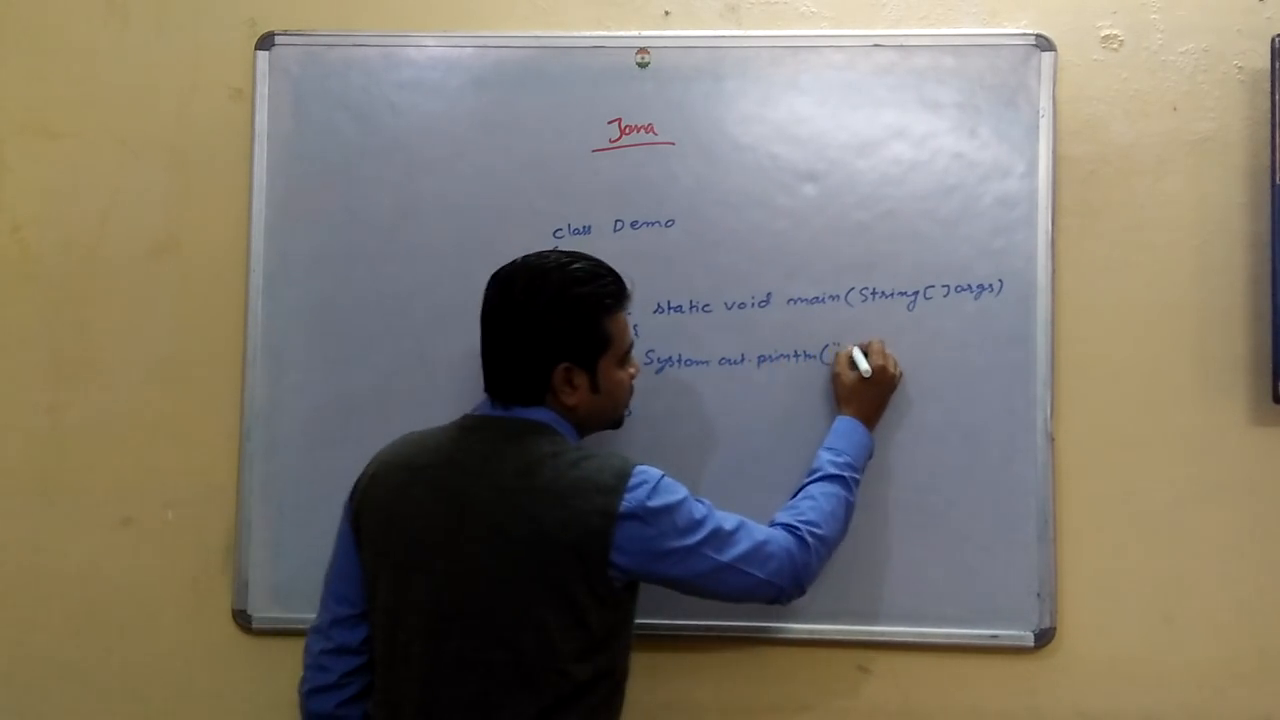 Java
class Demo
{
static void main(String[] args)
{
System.out.println("